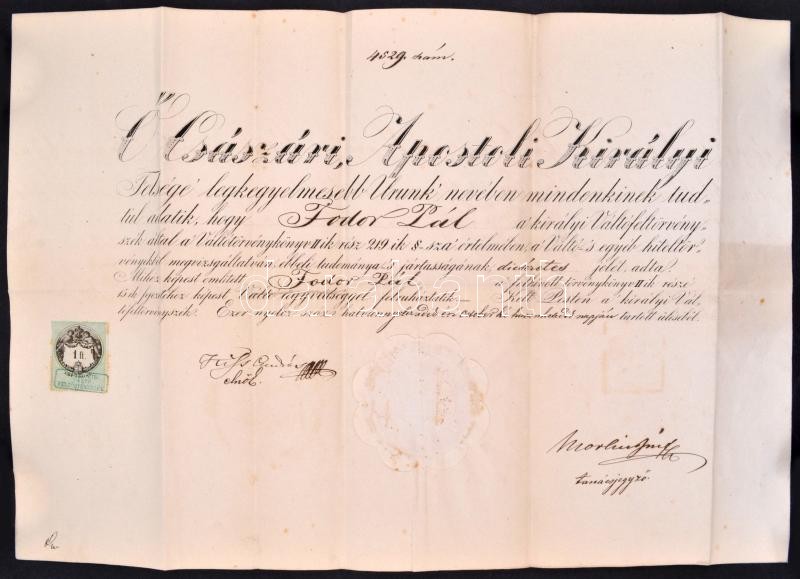 4529. szám.
Ő Császári, Apostoli Királyi
Felsége' legkegyelmesebb Urunk' nevében mindenkinek tud-
tul adatik, hogy Fodor Pál a' királyi Váltófeltörvény-
szék által a' Váltótörvénykönyv II ik rész 219 ik §-sza' értelmében, a' Váltó- 's egyéb hiteltör-
vényekből megvizsgáltatván, ebbeli tudománya 's jártasságának, dicséretes jelét adta.
Mihez képest említett Fodor Pál a' felidézett törvénykönyv II ik része
képest Váltó ügyvédséggel felruháztatik. Kelt Pesten a' királyi Vál-
tófeltörvényszék' Ezer nyolcz száz hatvan napján tartott üléséből.
elnök.
1 ft.
tanácsjegyző.